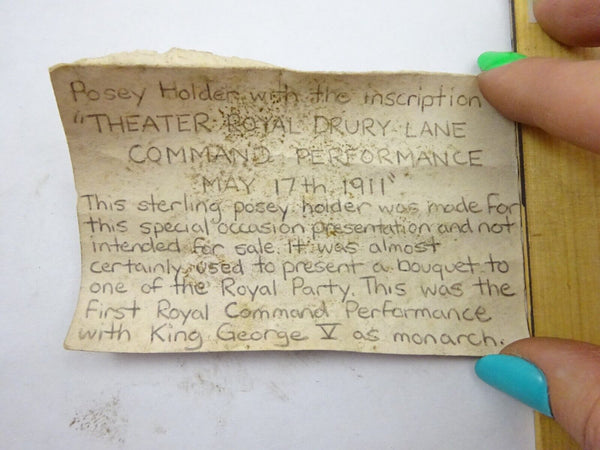 Posey Holder with the inscription
"THEATER ROYAL DRURY LANE
COMMAND PERFORMANCE
MAY 17th 1911"
This sterling posey holder was made for
this special occasion presentation and not
intended for sale. It was almost
certainly used to present a bouquet to
one of the Royal Party. This was the
first Royal Command Performance
with King George V as monarch.